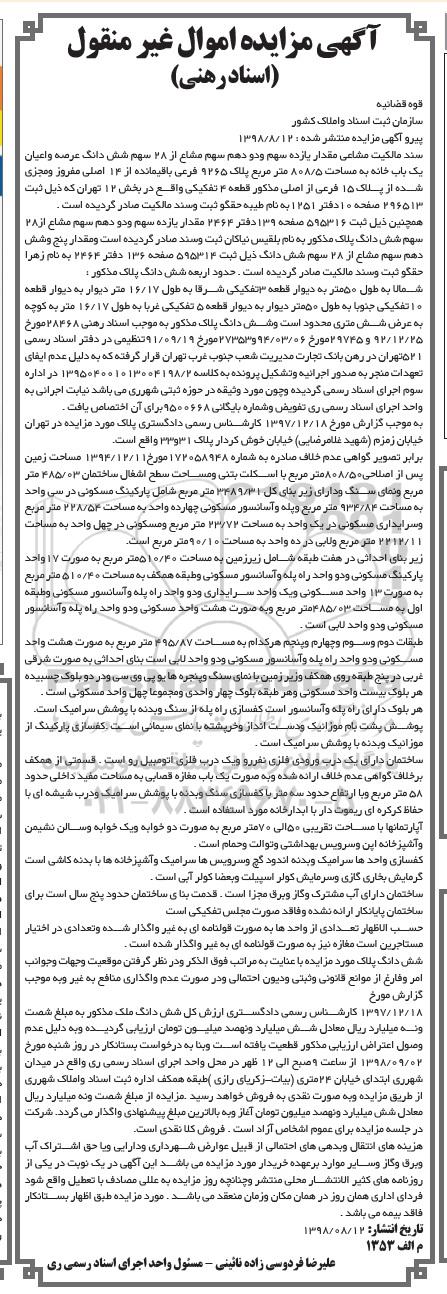 آگهی مزایده اموال غیر منقول
(اسناد رهنی)
قوه قضائیه
سازمان ثبت اسناد واملاک کشور
پیرو آگهی مزایده منتشر شده : ۱۳۹۸/۸/۱۲
سند مالکیت مشاعی مقدار یازده سهم ودو دهم سهم مشاع از ۲۸ سهم شش دانگ عرصه واعیان
یک باب خانه به مساحت ۸۰۸/۵ متر مربع پلاک ۹۲۶۵ فرعی باقیمانده از ۱۴ اصلی مفروز ومجزی
شده از پلاک ۱۵ فرعی از اصلی مذکور قطعه ۴ تفکیکی واقع در بخش ۱۲ تهران که ذیل ثبت
۲۹۶۵۱۳ صفحه ۱۰دفتر ۱۲۵۱ به نام طیبه حقگو ثبت وسند مالکیت صادر گردیده است .
همچنین ذیل ثبت ۵۹۵۳۱۶ صفحه ۱۳۹دفتر ۲۴۶۴ مقدار یازده سهم ودو دهم سهم مشاع از۲۸
سهم شش دانگ پلاک مذکور به نام بلقیس نیاکان ثبت وسند صادر گردیده است ومقدار پنج وشش
دهم سهم مشاع از ۲۸ سهم شش دانگ ذیل ثبت ۵۹۵۳۱۴ صفحه ۱۳۶ دفتر ۲۴۶۴ به نام زهرا
حقگو ثبت وسند مالکیت صادر گردیده است . حدود اربعه شش دانگ پلاک مذکور :
شمالا به طول ۵۰متر به دیوار قطعه ۳تفکیکی شرقا به طول ۱۶/۱۷ متر دیوار به دیوار قطعه
۱۰تفکیکی جنوبا به طول ۵۰متر دیوار به دیوار قطعه ۵ تفکیکی غربا به طول ۱۶/۱۷ متر به کوچه
به عرض شش متری محدود است وشش دانگ پلاک مذکور به موجب اسناد رهنی ۲۸۴۶۸مورخ
۹۲/۱۲/۲۵ و ۲۹۷۴۵مورخ ۹۴/۰۳/۰۶و۲۷۳۵۳مورخ ۹۱/۰۹/۱۹تنظیمی در دفتر اسناد رسمی
۵۲۱تهران در رهن بانک تجارت مدیریت شعب جنوب غرب تهران قرار گرفته که به دلیل عدم ایفای
تعهدات منجر به صدور اجرائیه وتشکیل پرونده به کلاسه ۱۳۹۵۰۴۰۰۱۰۱۳۰۰۴۱۹۸/۲ در اداره
سوم اجرای اسناد رسمی گردیده وچون مورد وثیقه در حوزه ثبتی شهرری می باشد نیابت اجرائی به
واحد اجرای اسناد رسمی ری تفویض وشماره بایگانی ۹۵۰۰۶۶۸برای آن اختصاص یافت .
به موجب گزارش مورخ ۱۳۹۷/۱۲/۱۸ کارشناس رسمی دادگستری پلاک مورد مزایده در تهران
خیابان زمزم (شهید غلامرضایی) خیابان خوش کردار پلاک ۳۱و۳۳ واقع است.
برابر تصویر گواهی عدم خلاف صادره به شماره ۱۷۲۰۵۸۹۴۸ مورخ۱۳۹۴/۱۲/۱۱ مساحت زمین
پس از اصلاحی۸۰۸/۵۰متر مربع با اسکلت بتنی ومساحت سطح اشغال ساختمان ۴۸۵/۰۳ متر
مربع ونمای سنگ ودارای زیر بنای کل ۳۴۸۹/۳۱ متر مربع شامل پارکینگ مسکونی در سی واحد
به مساحت ۹۳۴/۸۴ متر مربع وپله وآسانسور مسکونی چهارده واحد به مساحت ۲۲۸/۵۴ متر مربع
وسرایداری مسکونی در یک واحد به مساحت ۲۳/۷۲ متر مربع ومسکونی در چهل واحد به مساحت
۲۲۱۲/۱۱ متر مربع ولابی در ده واحد به مساحت ۹۰/۱۰متر مربع است.
زیر بنای احداثی در هفت طبقه شامل زیرزمین به مساحت ۵۱۰/۴۰متر مربع به صورت ۱۷واحد
پارکینگ مسکونی ودو واحد راه پله وآسانسور مسکونی وطبقه همکف به مساحت ۵۱۰/۴۰ متر مربع
به صورت ۱۳ واحد مسکونی ویک واحد سرایداری ودو واحد راه پله وآسانسور مسکونی وطبقه
اول به مساحت ۴۸۵/۰۳متر مربع وبه صورت هشت واحد مسکونی ودو واحد راه پله وآسانسور
مسکونی ودو واحد لابی است .
طبقات دوم وسوم وچهارم وپنجم هرکدام به مساحت ۴۹۵/۸۷ متر مربع به صورت هشت واحد
مسکونی ودو واحد راه پله وآسانسور مسکونی ودو واحد لابی است بنای احداثی به صورت شرقی
غربی در پنج طبقه روی همکف وزیر زمین با نمای سنگ وپنجره ها یو پی وی سی ودر دو بلوک چسبیده
هر بلوک بیست واحد مسکونی وهر طبقه بلوک چهار واحدی ومجموعا چهل واحد مسکونی است .
هر بلوک دارای راه پله وآسانسور است کفسازی راه پله از سنگ وبدنه با پوشش سرامیک است.
پوشش پشت بام موزائیک ودست انداز وخرپشته با نمای سیمانی است .کفسازی پارکینگ از
موزائیک وبدنه با پوشش سرامیک است .
ساختمان دارای یک درب ورودی فلزی نفررو ویک درب فلزی اتومبیل رو است . قسمتی از همکف
برخلاف گواهی عدم خلاف ارائه شده وبه صورت یک باب مغازه قصابی به مساحت مفید داخلی حدود
۵۸ متر مربع وبا ارتفاع حدود سه متر با کفسازی سنگ وبدنه با پوشش سرامیک ودرب شیشه ای با
حفاظ کرکره ای ریموت دار با ابدارخانه مورد استفاده است .
آپارتمانها با مساحت تقریبی ۵۰الی ۷۰متر مربع به صورت دو خوابه ویک خوابه وسالن نشیمن
وآشپزخانه اپن وسرویس بهداشتی وتوالت وحمام است .
کفسازی واحد ها سرامیک وبدنه اندود گچ وسرویس ها سرامیک وآشپزخانه ها با بدنه کاشی است
گرمایش بخاری گازی وسرمایش کولر اسپیلت وبعضا کولر آبی است .
ساختمان دارای آب مشترک وگاز وبرق مجزا است . قدمت بنا ی ساختمان حدود پنج سال است برای
ساختمان پایانکار ارائه نشده وفاقد صورت مجلس تفکیکی است
حسب الاظهار تعدادی از واحد ها به صورت قولنامه ای به غیر واگذار شده وتعدادی در اختیار
مستاجرین است مغازه نیز به صورت قولنامه ای به غیر واگذار شده است .
شش دانگ پلاک مورد مزایده با عنایت به مراتب فوق الذکر ودر نظر گرفتن موقعیت وجهات وجوانب
امر وفارغ از موانع قانونی وثبتی ودیون احتمالی ودر صورت عدم واگذاری منافع به غیر وبه موجب
گزارش مورخ
۱۳۹۷/۱۲/۱۸ کارشناس رسمی دادگستری ارزش کل شش دانگ ملک مذکور به مبلغ شصت
ونه میلیارد ریال معادل شش میلیارد ونهصد میلیون تومان ارزیابی گردیده وبه دلیل عدم
وصول اعتراض ارزیابی مذکور قطعیت یافته است وبنا به درخواست بستانکار در روز شنبه مورخ
۱۳۹۸/۰۹/۰۲ از ساعت ۹صبح الی ۱۲ ظهر در محل واحد اجرای اسناد رسمی ری واقع در میدان
شهرری ابتدای خیابان ۲۴متری (بیات–زکریای رازی )طبقه همکف اداره ثبت اسناد واملاک شهرری
از طریق مزایده وبه صورت نقدی به فروش خواهد رسید .مزایده از مبلغ شصت ونه میلیارد ریال
معادل شش میلیارد ونهصد میلیون تومان آغاز وبه بالاترین مبلغ پیشنهادی واگذار می گردد. شرکت
در جلسه مزایده برای عموم اشخاص آزاد است . فروش کلا نقدی است.
هزینه های انتقال وبدهی های احتمالی از قبیل عوارض شهرداری ودارایی ویا حق اشتراک آب
وبرق وگاز وسایر موارد برعهده خریدار مورد مزایده می باشد این آگهی در یک نوبت در یکی از
روزنامه های کثیر الانتشار محلی منتشر وچنانچه روز مزایده به عللی مصادف با تعطیل واقع شود
فردای اداری همان روز در همان مکان وزمان منعقد می باشد . مورد مزایده طبق اظهار بستانکار
فاقد بیمه می باشد .
تاریخ انتشار: ۱۳۹۸/۰۸/۱۲
م الف ۱۳۵۳
علیرضا فردوسی زاده نائینی – مسئول واحد اجرای اسناد رسمی ری